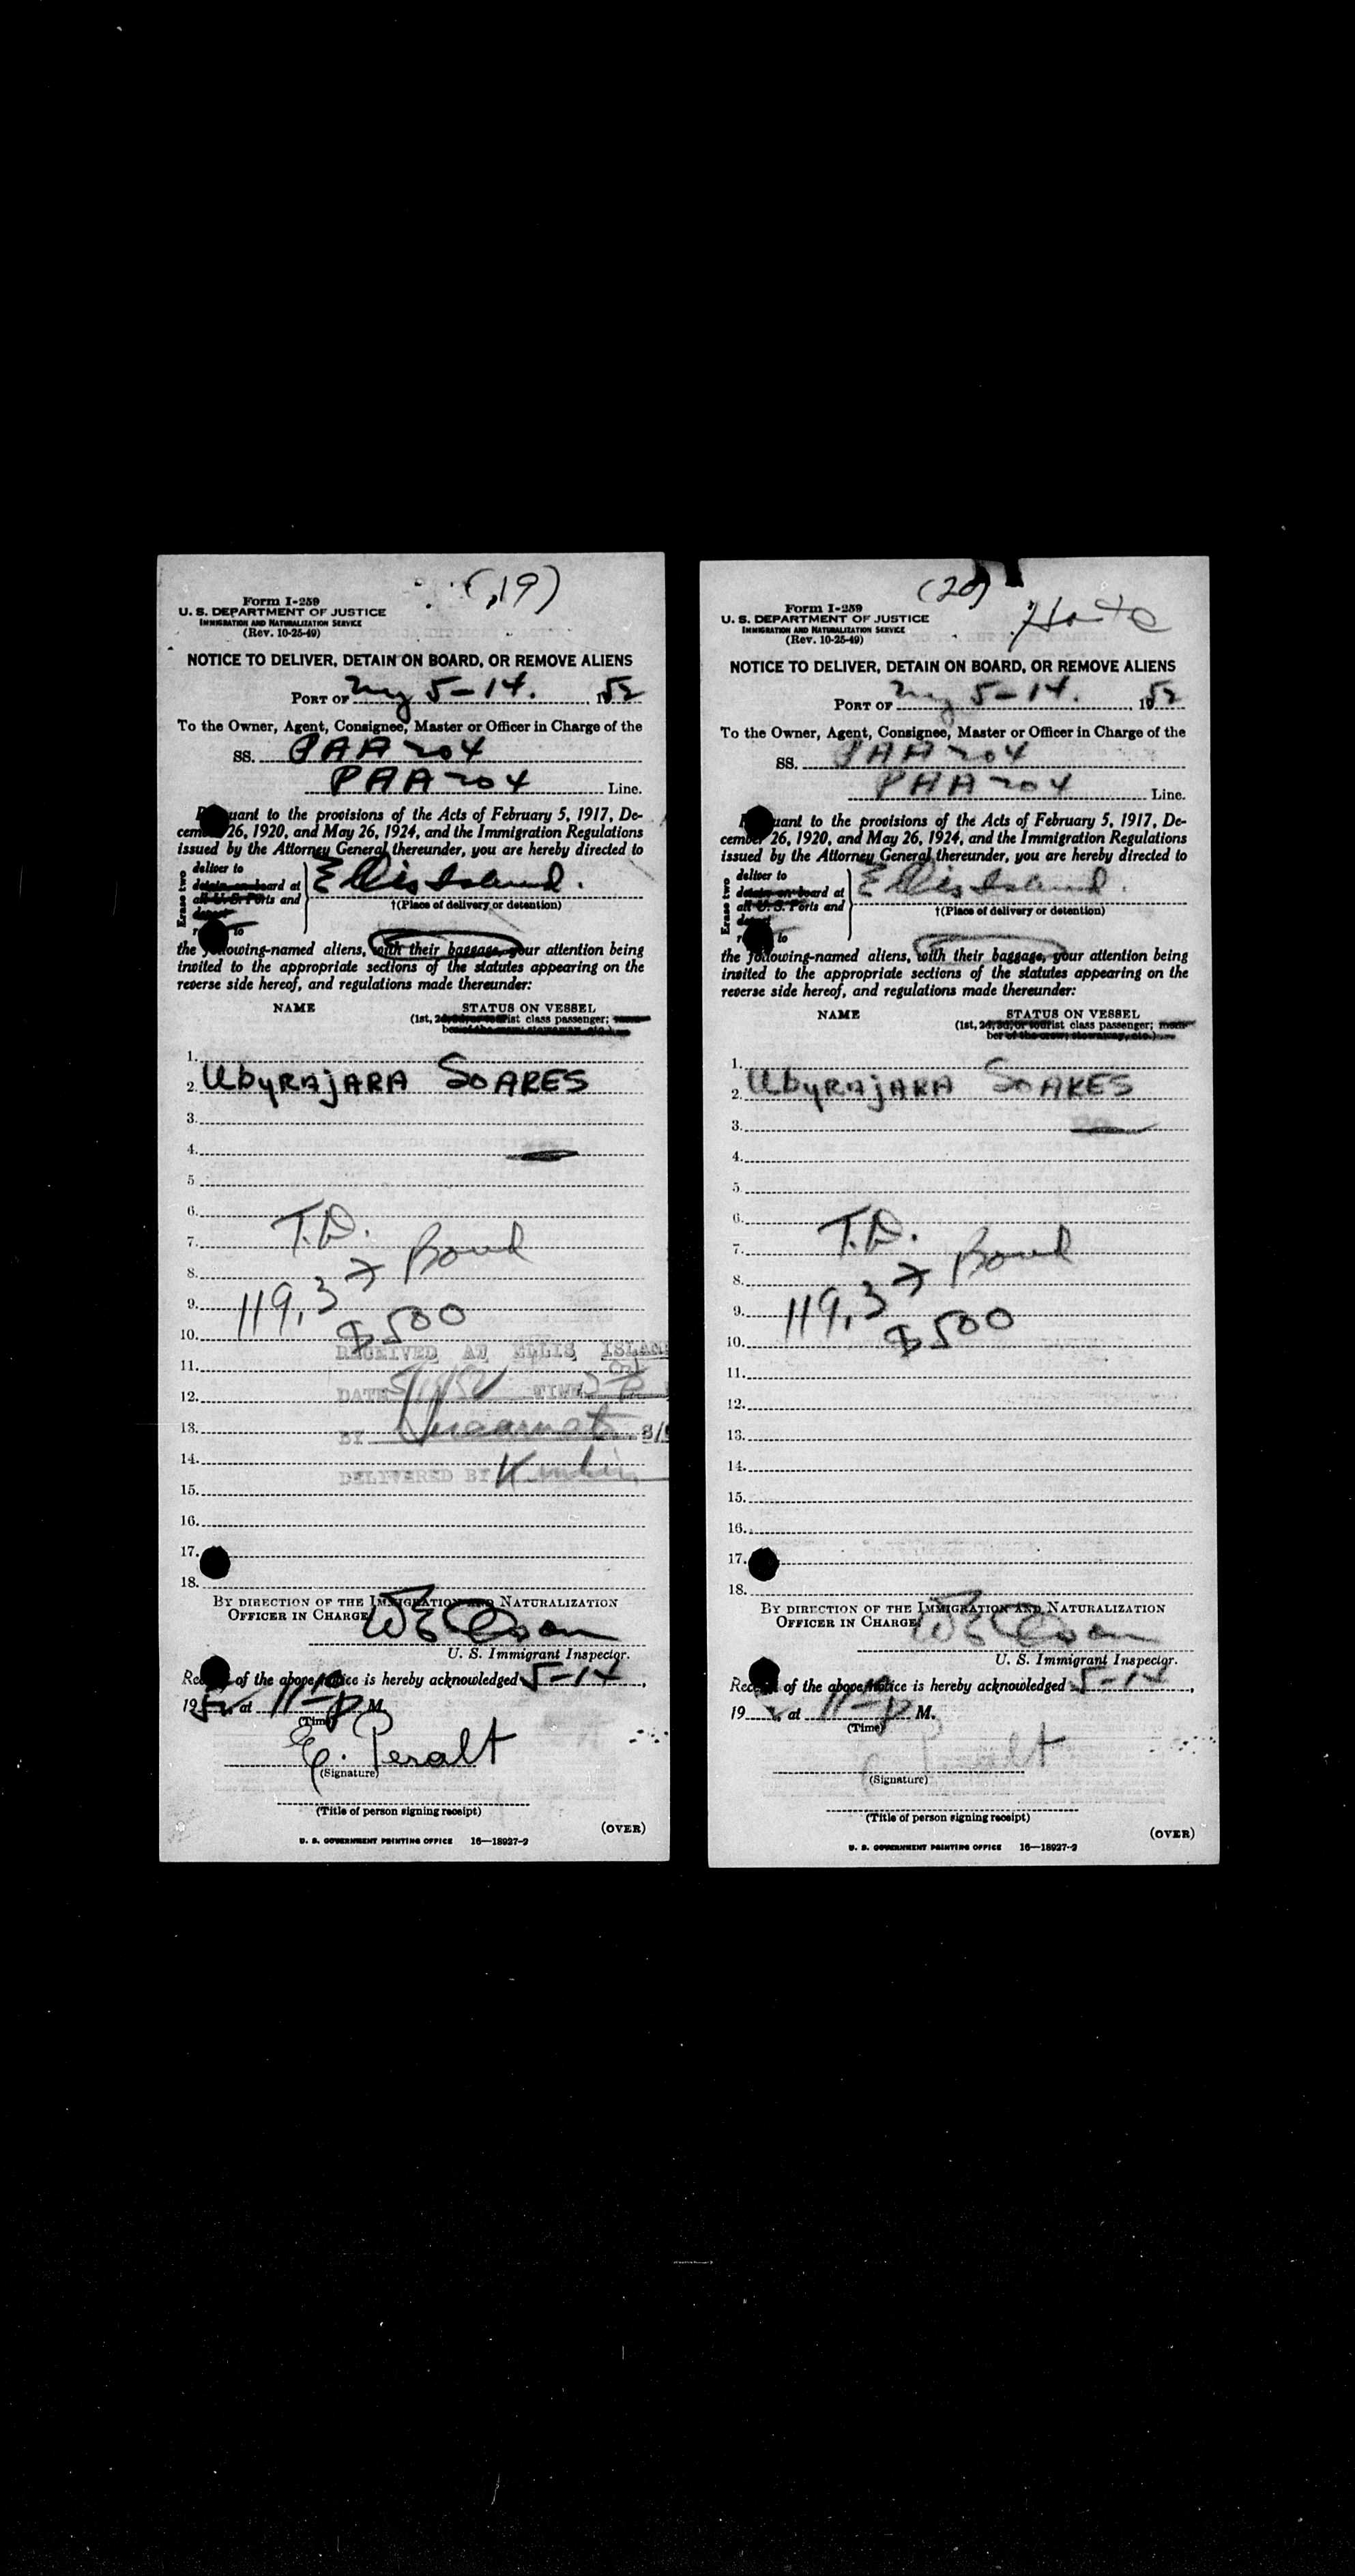 (19)
Form I-259
U. S. DEPARTMENT OF JUSTICE
IMMIGRATION AND NATURALIZATION SERVICE
(Rev. 10-25-49)
NOTICE TO DELIVER, DETAIN ON BOARD, OR REMOVE ALIENS
PORT OF NY 5-14. 1952
To the Owner, Agent, Consignee, Master or Officer in Charge of the
SS. PAA 204
PAA 204 Line.
uant to the provisions of the Acts of February 5, 1917, De-
cember 26, 1920, and May 26, 1924, and the Immigration Regulations
issued by the Attorney General thereunder, you are hereby directed to
Erase two
deliver to
detain on board at
all U. S. Ports and
deport
to
Ellis Island.
†(Place of delivery or detention)
the following-named aliens, with their baggage, your attention being
invited to the appropriate sections of the statutes appearing on the
reverse side hereof, and regulations made thereunder:
NAME STATUS ON VESSEL
(1st, 2d, 3d, or tourist class passenger; mem-
ber of the crew; stowaway, etc.)
1.
2. UbyRAjARA SOARES
3.
4.
5.
6.
T.D.
7.
Bond
8.
9. 119,37
$500
10.
RECEIVED AT ELLIS ISLAND
11.
12. DATE TIME
13. BY
14. DELIVERED BY
15.
16.
17.
18.
BY DIRECTION OF THE IMMIGRATION AND NATURALIZATION
OFFICER IN CHARGE
U. S. Immigrant Inspector.
of the above notice is hereby acknowledged 5-14,
1952, at 11-p M.
(Time)
E. Peralt
(Signature)
(Title of person signing receipt)
(OVER)
U. S. GOVERNMENT PRINTING OFFICE 16—18927-2
(20)
Form I-259
U. S. DEPARTMENT OF JUSTICE
IMMIGRATION AND NATURALIZATION SERVICE
(Rev. 10-25-49)
NOTICE TO DELIVER, DETAIN ON BOARD, OR REMOVE ALIENS
PORT OF NY 5-14. 1952
To the Owner, Agent, Consignee, Master or Officer in Charge of the
SS. PAA 204
PAA 204 Line.
uant to the provisions of the Acts of February 5, 1917, De-
cember 26, 1920, and May 26, 1924, and the Immigration Regulations
issued by the Attorney General thereunder, you are hereby directed to
Erase two
deliver to
detain on board at
all U. S. Ports and
deport
to
Ellis Island.
†(Place of delivery or detention)
the following-named aliens, with their baggage, your attention being
invited to the appropriate sections of the statutes appearing on the
reverse side hereof, and regulations made thereunder:
NAME STATUS ON VESSEL
(1st, 2d, 3d, or tourist class passenger; mem-
ber of the crew; stowaway, etc.)
1.
2. UbyRAjARA SOARES
3.
4.
5.
6.
T.D.
7.
Bond
8.
9. 119,37
$500
10.
11.
12.
13.
14.
15.
16.
17.
18.
BY DIRECTION OF THE IMMIGRATION AND NATURALIZATION
OFFICER IN CHARGE
U. S. Immigrant Inspector.
of the above notice is hereby acknowledged 5-14,
19 , at 11-p M.
(Time)
E. Peralt
(Signature)
(Title of person signing receipt)
(OVER)
U. S. GOVERNMENT PRINTING OFFICE 16—18927-2